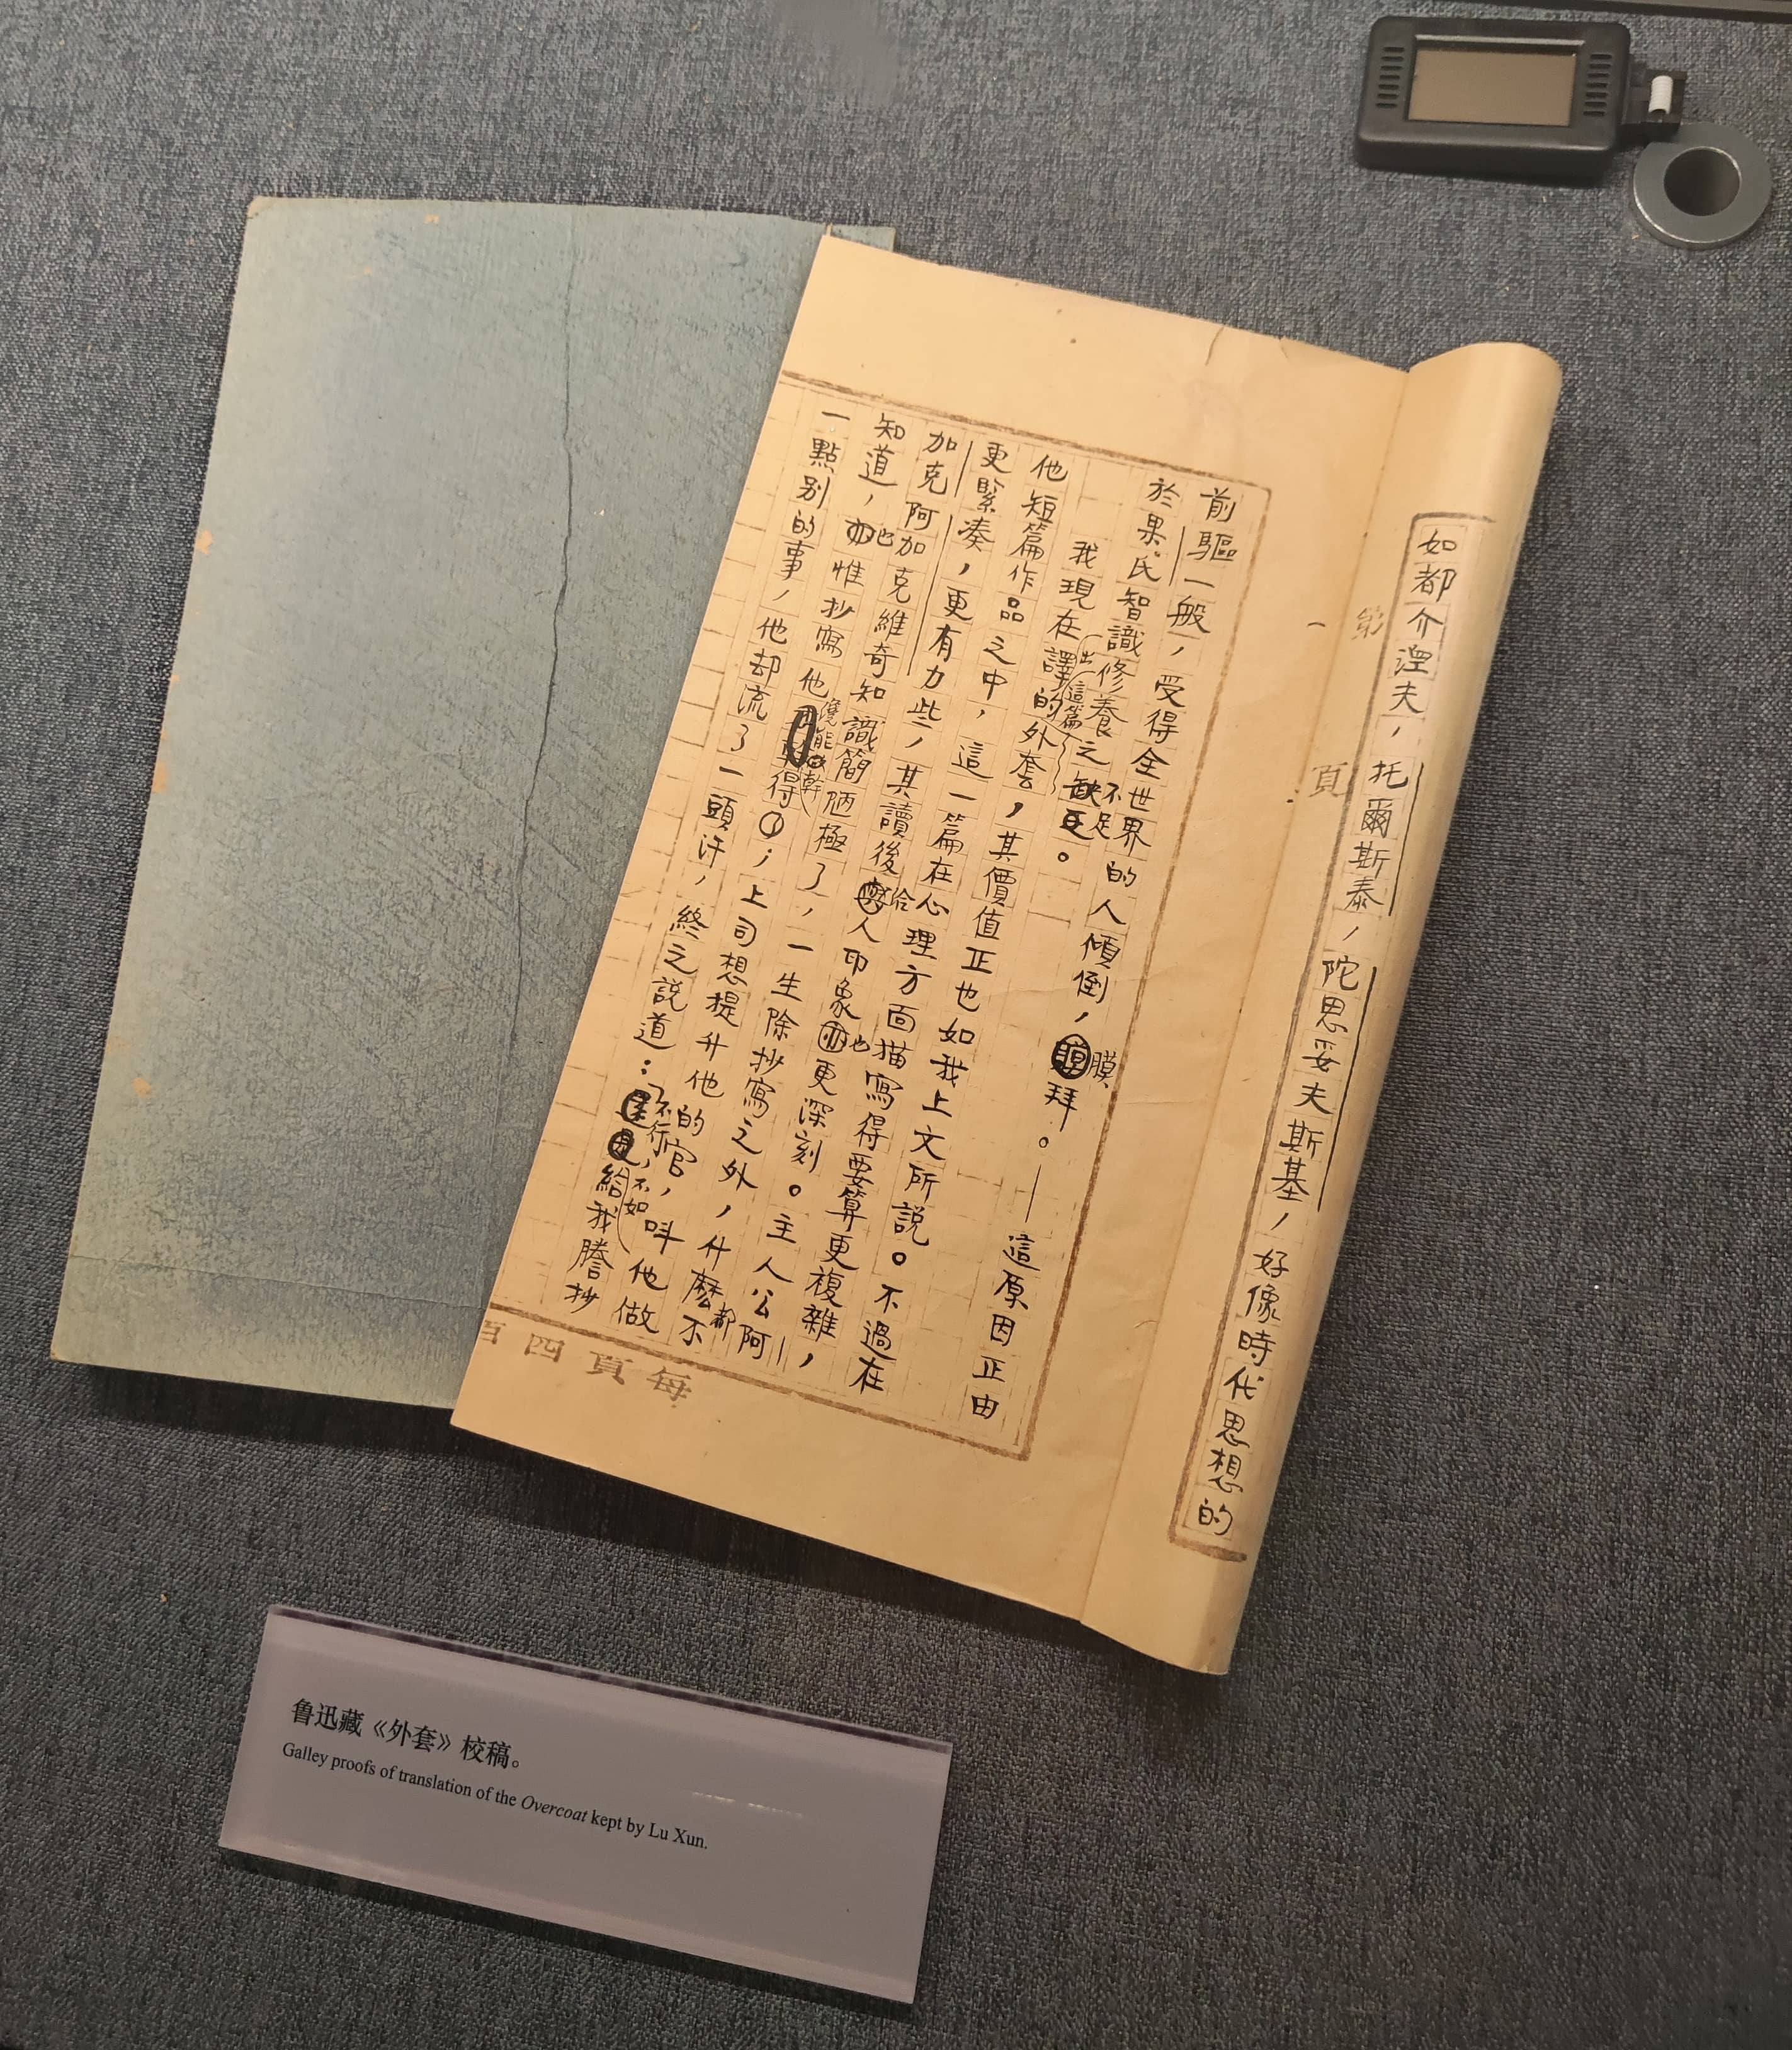 如都介涅夫，托爾斯泰，陀思妥夫斯基，好像時代思想的
第
一
頁
前驅一般，受得全世界的人傾倒，膜拜。——這原因正由
於果氏智識修養之不足。
我現在譯出這篇的外套，其價值正也如我上文所說。不過在
他短篇作品之中，這一篇在心理方面描寫得要算更複雜，
更緊凑，更有力些，其讀後給人印象也更深刻。主人公阿
加克阿加克維奇知識簡陋極了，一生除抄寫之外，什麼都不
知道，也惟抄寫他纔能幹得；上司想提升他的官，叫他做
一點別的事，他却流了一頭汗，終之說道：不行，不如給我謄抄
每頁四百
鲁迅藏《外套》校稿。
Galley proofs of translation of the Overcoat kept by Lu Xun.